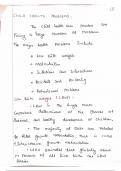 CHILD HEALTH PROBLEMS:
The child health care services are
Facing a large numbers of Problems
The major health Problems Include
Low birth weight
Malnutrition
Infections and Infestations
Accidents and Poisoning
Behavioral Problems
Low Birth weight (LBW):
LBW is the single most
determinant of the chances of
Survival and healthy development of children.
The majority of LBW are related
to fetal growth retardation than is called
Intrauterine growth retardation